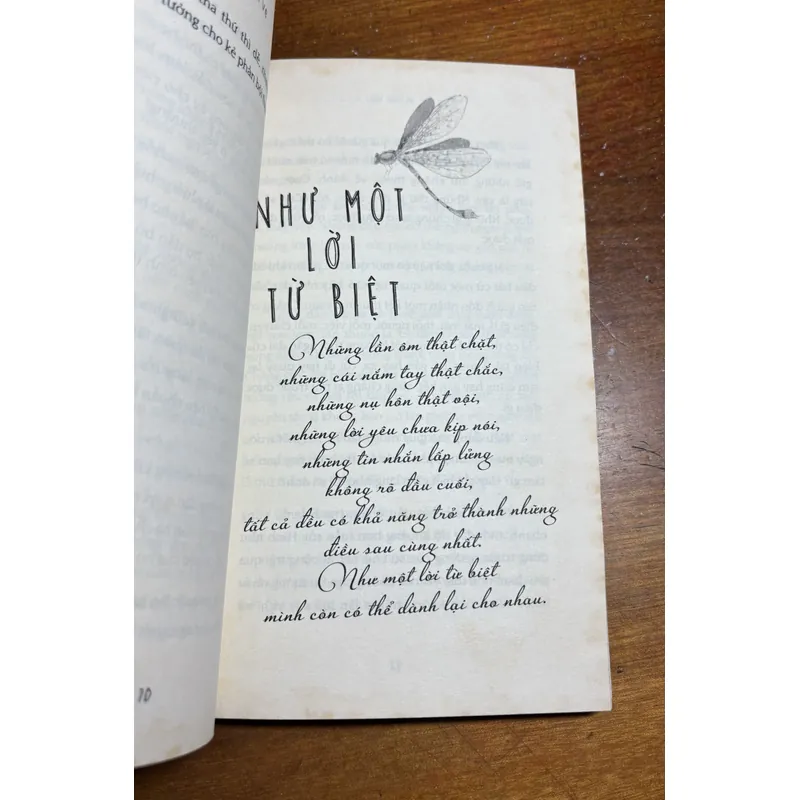 tha thứ thì dễ,
tưởng cho kẻ phản bội
10
NHƯ MỘT
LỜI
TỪ BIỆT
Những lần ôm thật chặt,
những cái nắm tay thật chắc,
những nụ hôn thật vội,
những lời yêu chưa kịp nói,
những tin nhắn lấp lửng
không rõ đầu cuối,
tất cả đều có khả năng trở thành những
điều sau cùng nhất.
Như một lời từ biệt
mình còn có thể dành lại cho nhau.